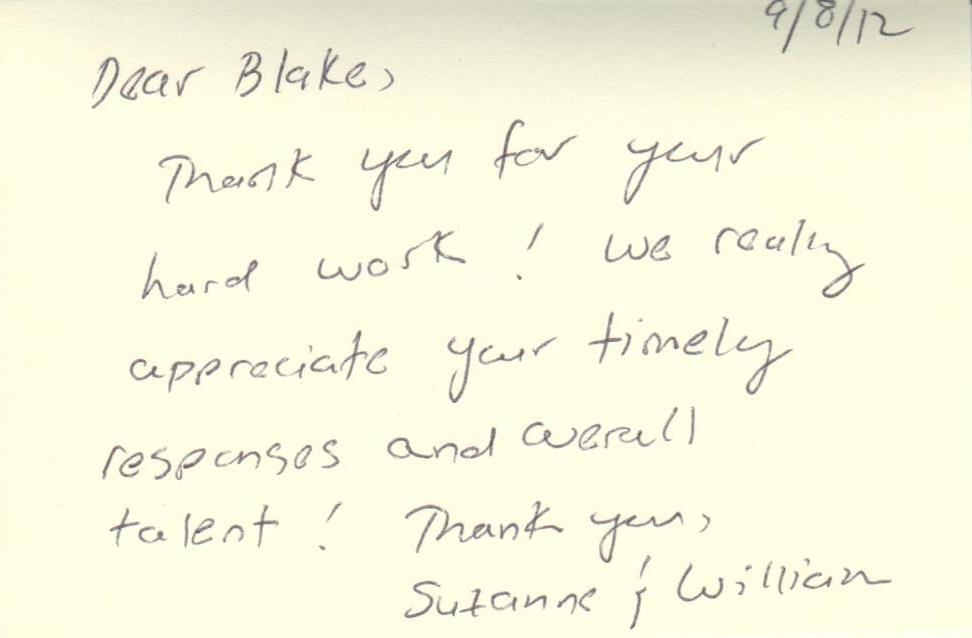 9/8/12
Dear Blake,
Thank you for your
hard work! We really
appreciate your timely
responses and overall
talent! Thank you,
Suzanne & William